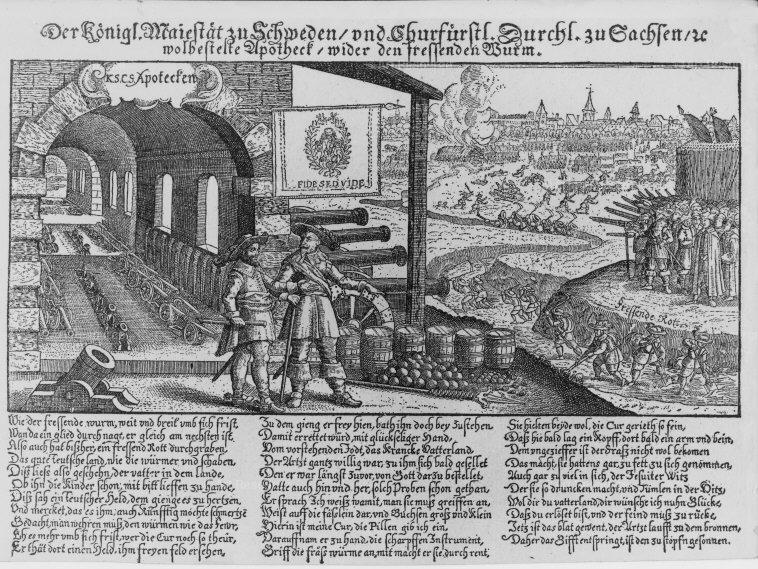 Der Königl. Maiestät zu Schweden/ vnd Churfürstl. Durchl. zu Sachsen/ ꝛc
wolbestelte Apotheck/ wider den fressenden Wurm.
K.S.C.S. Apotecken
FIDE SED VIDE
fressende Rotte
Wie der fressende wurm, weit vnd breit vmb sich frist,
Wan da ein glied durch nagt, er gleich am nechsten ist,
Also auch hat bisher, ein fressend Rott durchgraben,
Das gute teutsche land, wie die würmer vnd schaben,
Diß ließ also geschehen, der vatter in dem lande,
Ob ihn die Kinder schon, mit bitt lieffen zu hande,
Diß sah ein teutscher Held, dem gienge es zu hertzen,
Vnd mercket, das es ihm, auch Künfftig möchte schmertze
Gedacht, man wehren muß, den würmen wie das fewr,
Eh es mehr vmb sich frist, wer die Cur noch so theür,
Er thät dort einen Held, ihm freyen feld ersehen,
Zu dem gieng er frey hien, bath ihn doch bey zu stehen
Damit errettet würd, mit glückseliger Hand,
Vom vorstehenden Todt, das Krancke Vatterland,
Der Artzt gantz willig war, zu ihm sich bald gesellet
Den er war längst zuvor, von Gott darzu bestellet,
Hatte auch hin vnd her, solch Proben schon gethan,
Er sprach Ich weiß womit, man sie muß greiffen an,
Weist auff die fäßlein dar, vnd Buchsen groß vnd klein
Hierin ist meine Cur, die Pillen gib ich ein,
Darauff nam er zu hand, die scharpffen Instrument,
Griff die fräß würme an, mit macht er sie durch rent,
Sie hielten beyde wol, die Cur gerieth so fein,
Daß hie bald lag ein Kopff, dort bald ein arm vnd bein,
Dem vngezieffer ist der fraß nicht wol bekomen
Das macht, sie hattens gar zu fett zu sich genommen,
Auch gar zu viel in sich, der Jesuiter Witz
Der sie so druncken macht, vnd tumlen in der Hitz,
Wol dir du vatterland, dir wünsche ich nuhn Glücke,
Daß du erlöst bist, vnd der feind muß zu rücke,
Jetz ist das blat gewent, der Artzt laufft zu dem bronnen,
Daher das Gifft entspringt, ist den zu stopfn gesonnen.